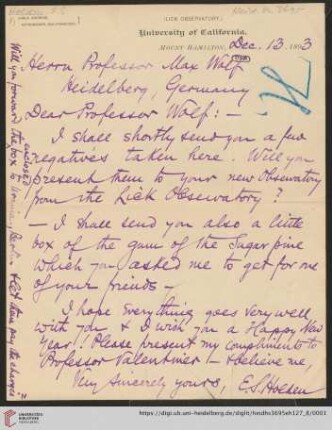 LICK OBSERVATORY,
University of California.
MOUNT HAMILTON, Dec. 13. 1893
Herrn Professor Max Wolf
Heidelberg, Germany
Dear Professor Wolf: —
I shall shortly send you a few
negatives taken here. Will you
present them to your new Observatory
from the Lick Observatory?
— I shall send you also a little
box of the gum of the Sugar pine
which you asked me to get for one
of your friends —
I hope everything goes very well
with you & I wish you a Happy New
Year! Please present my compliments to
Professor Valentiner — & believe me
Very Sincerely yours, E.S. Holden
Will you forward the enclosed box to Urania, Berlin & let them pay the charges
https://digi.ub.uni-heidelberg.de/diglit/heidhs3695eh127_6/0001